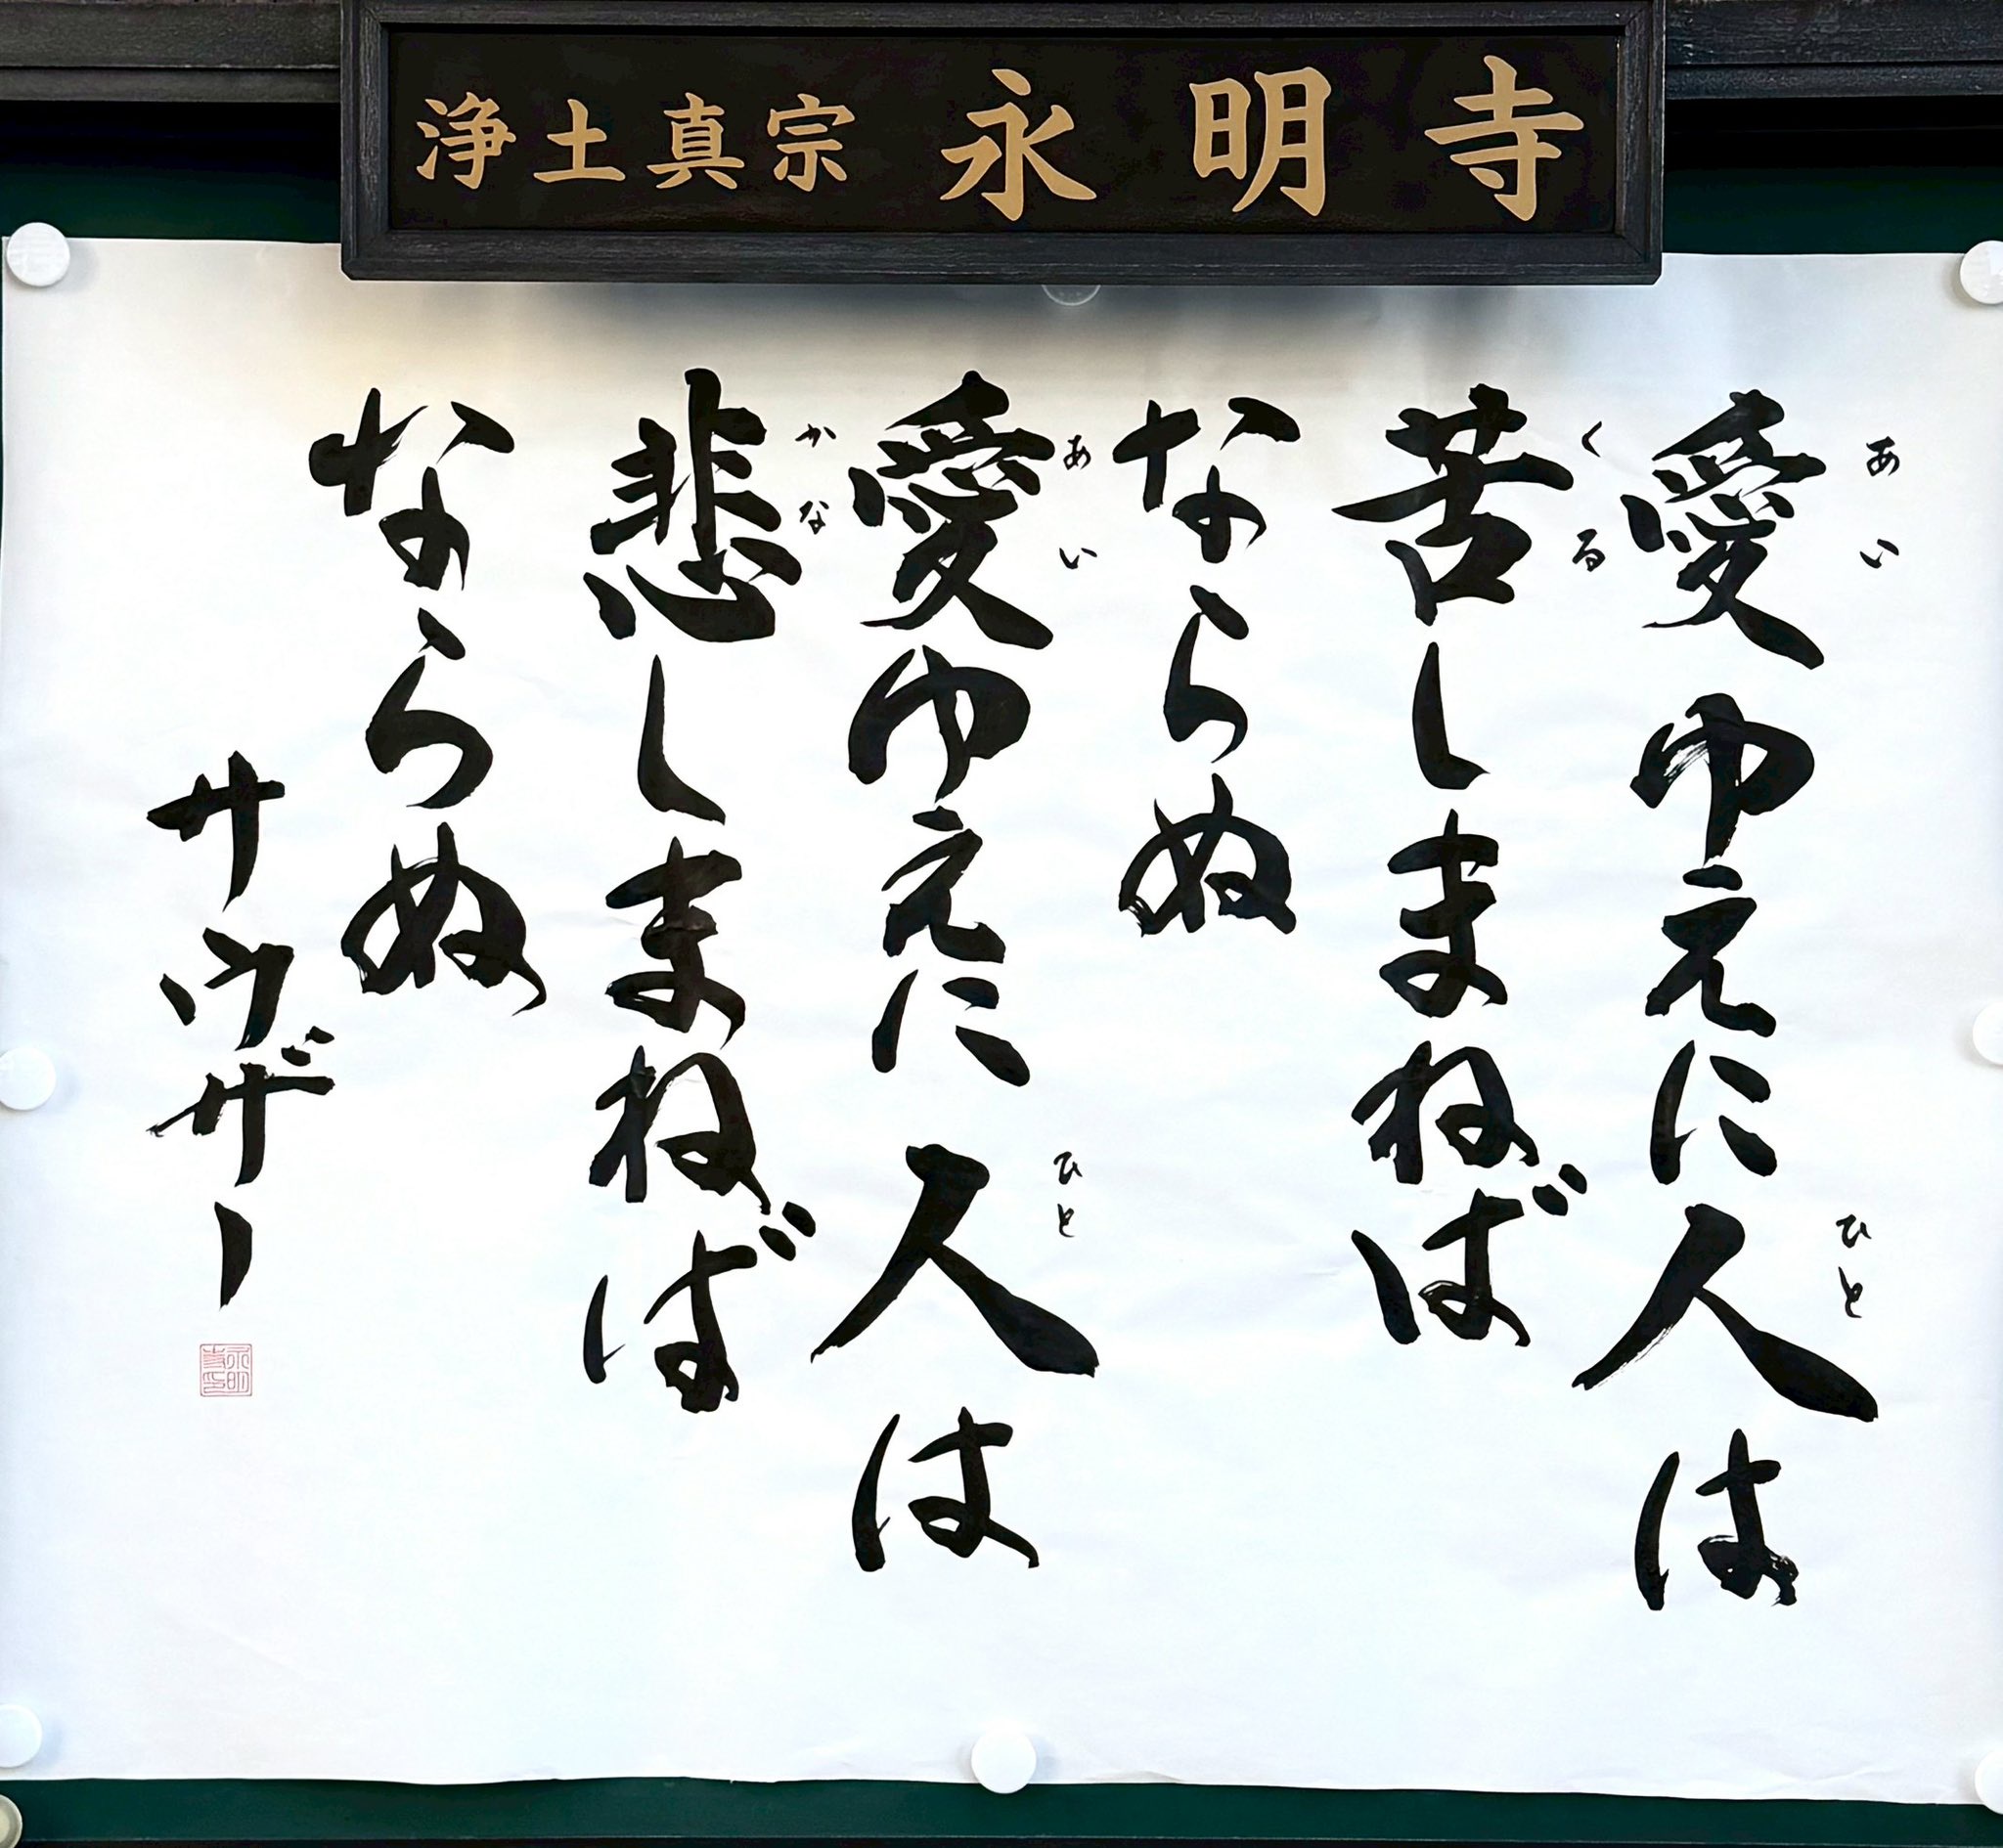 浄土真宗 永明寺
愛ゆえに人は
苦しまねば
ならぬ
愛ゆえに人は
悲しまねば
ならぬ
サウザー
あい
ひと
くる
あい
ひと
かな
永明寺印